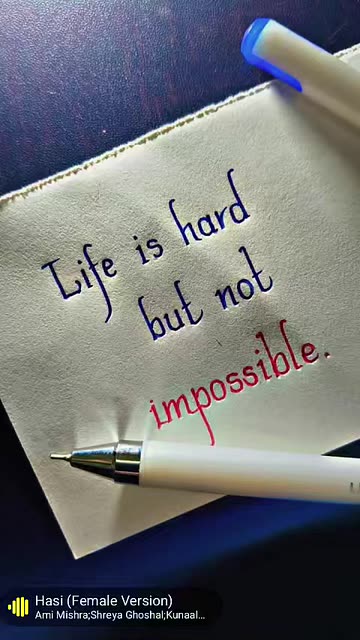 Life is hard
but not
impossible.
Hasi (Female Version)
Ami Mishra;Shreya Ghoshal;Kunaal...